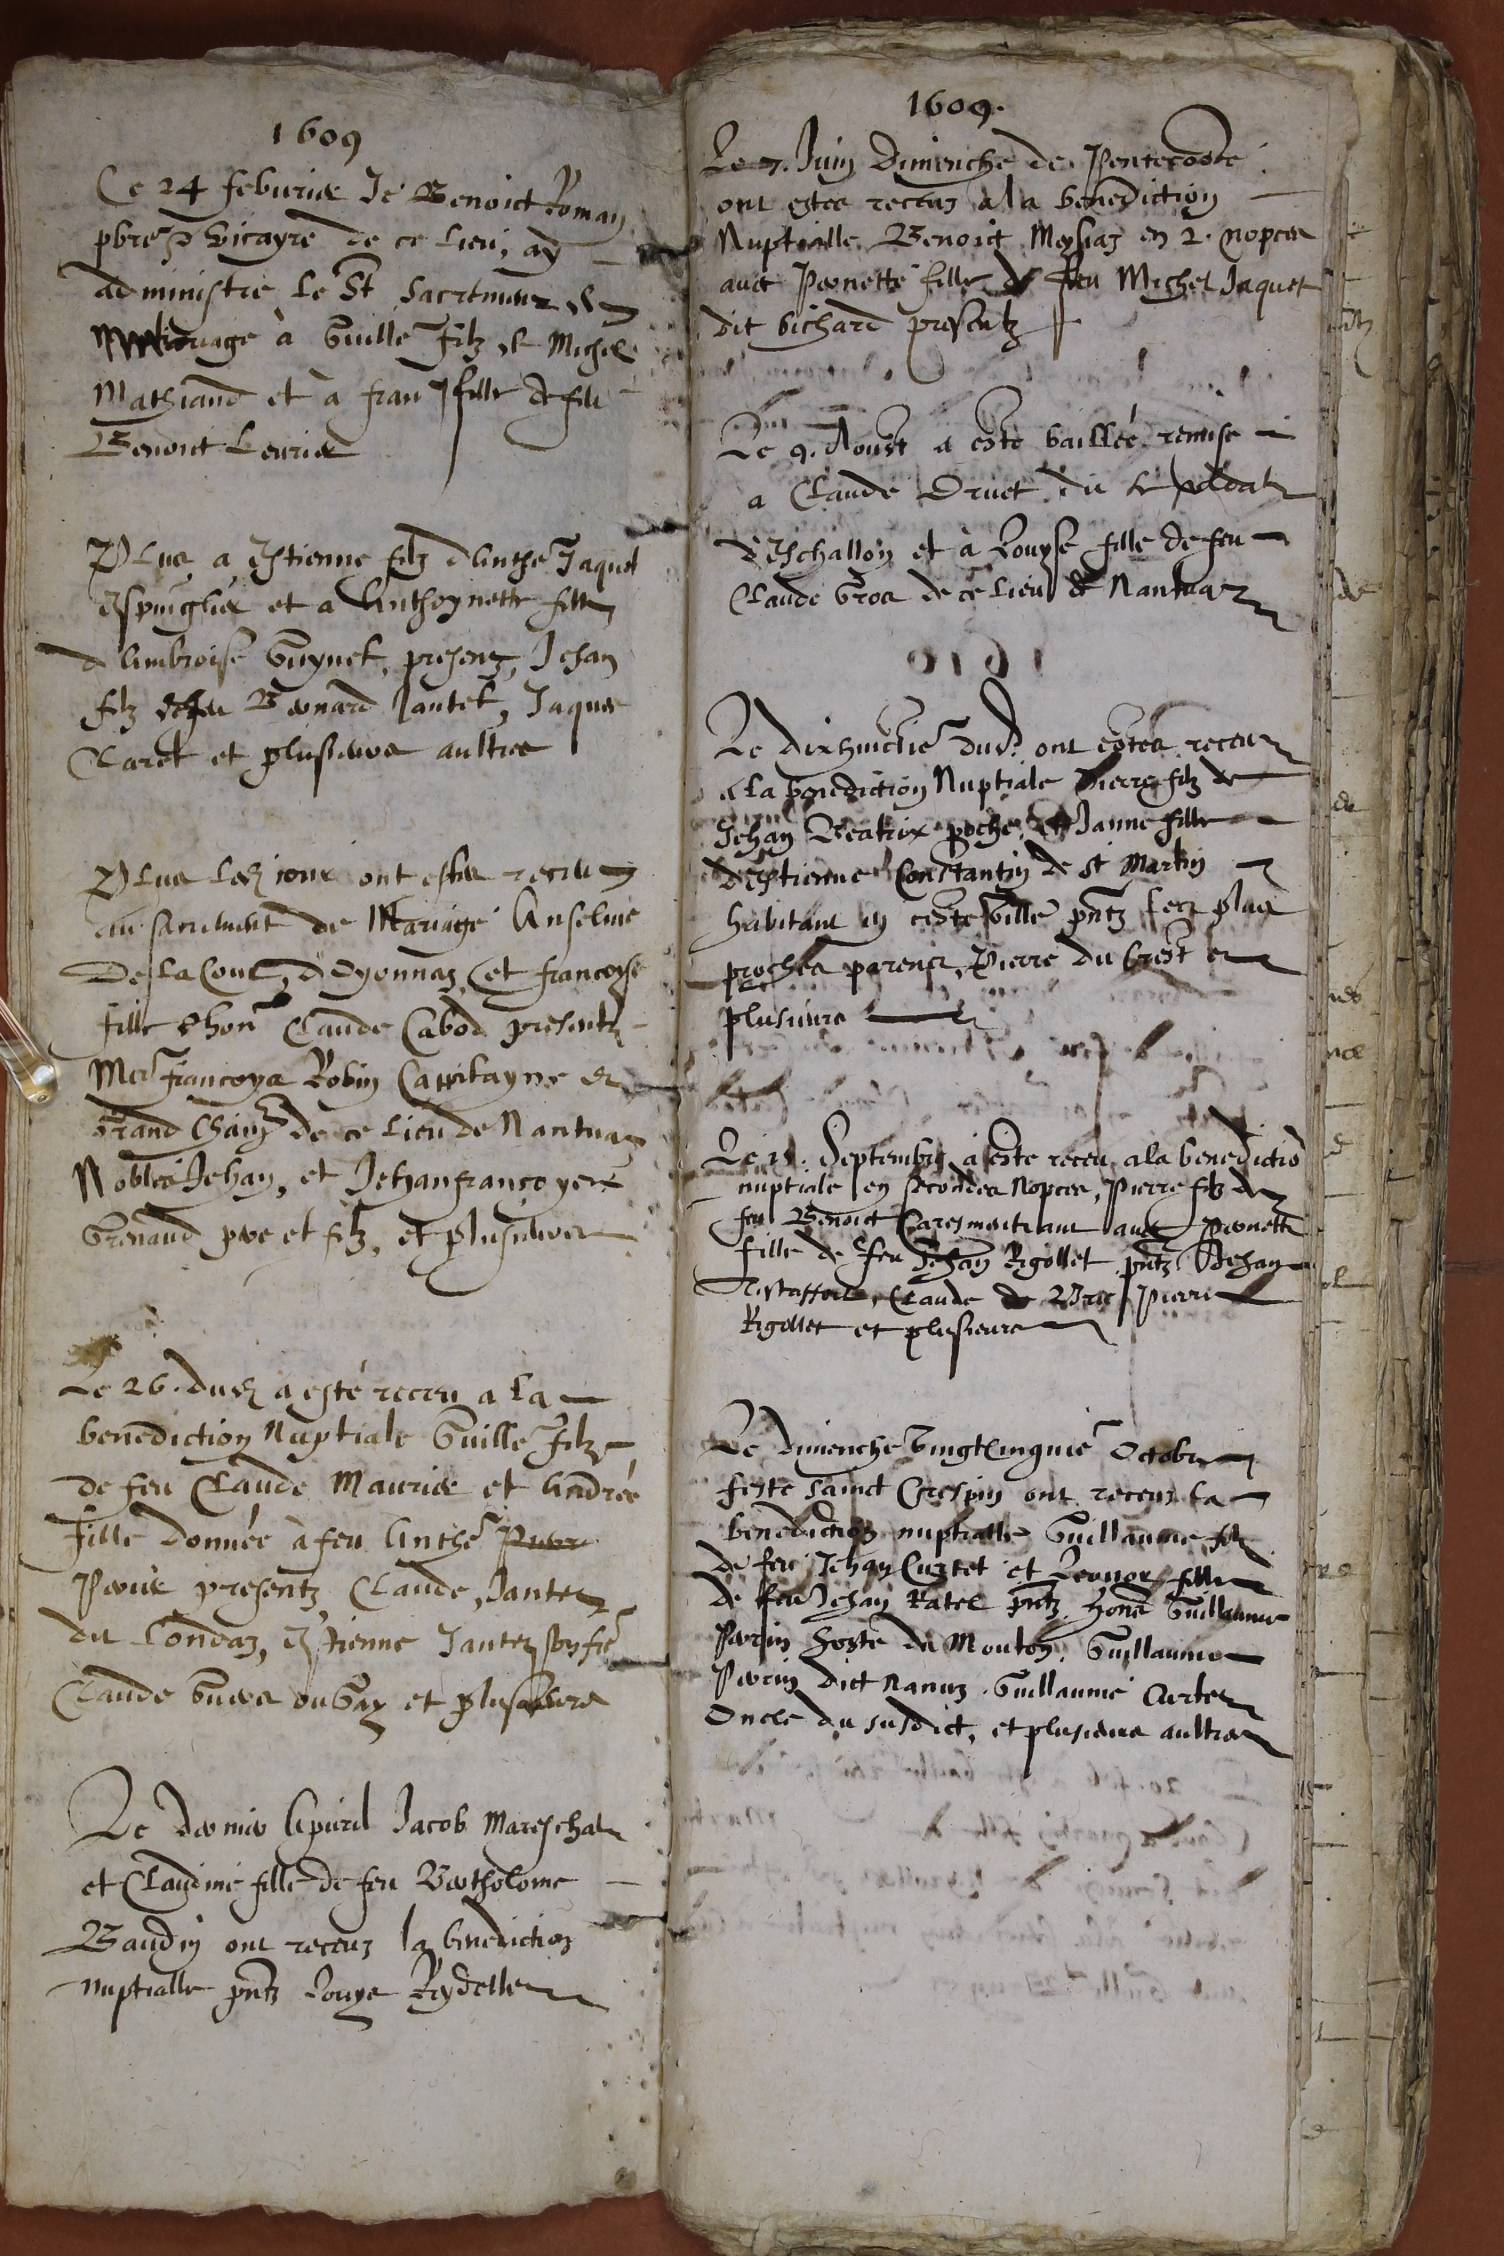 1609
Ce 24 febvrier Je Benoict Roman
pbre & vicayre de ce lieu, ay
administré le St Sacrement de
Mariage à Guille filz de Michel
Mathiand et à fran fille de feu
Benoict Levrier
Plus a Estienne filz d'Anthe Jaquet
Espinglier et a Anthoynette fille
d'Ambroise Guynet, presentz, Jehan
filz de feu Bernard Jantet, Jaques
Claret et plusieurs aultres
Plus led jour ont estes receu
au sacrement de Mariage Anselme
De la Cour, d'Oyonnaz, et francoyse
fille d'hon Claude Cabod presentz
Mes francoys Robin Cappitayne et
Grand Cham de ce lieu de Nantuaz
Nobles Jehan, et Jehanfrancoys
Grenaud pere et filz, et plusieurs
Le 26. dud a esté receu a la
benediction Nuptiale Guille filz
de feu Claude Maurier et Andrée
fille donnée à feu Anthe
presentz Claude Jantet
du Londaz, Estienne Jantet son
Claude ou Gay et plusieurs
Le dernier Apvril Jacob Mareschal
et Claudine fille de feu Bartholome
Baudin ont receuz la benediction
nuptialle pntz Louys Rydelle
1609.
Le 7. Juin Dimenche de Pentecoste
ont estes receuz a la benediction
Nuptialle Benoict Meysiaz en 2. nopces
avec Pernette fille de feu Michel Jaquet
dit bichard presentz
Le 9. Aoust a este baillée remise
a Claude Druet du
d'Eschallon et à Louyse fille de feu
Claude Gros de ce lieu de Nantuaz
Le dixhuictie dud. ont estes receuz
a la benediction Nuptiale Pierre filz de
Jehan Beatrix poche, et Janne fille
d'Estienne Constantin de St Martin
habitant en ceste ville pntz leurs plus
proches parentz, Pierre du Crest et
plusieurs
Le Septembre a este receu a la benedictio
nuptiale en secondes Nopces, Pierre filz de
feu Benoict Caresmentrant avec Pernette
fille de feu Jehan Rigollet pntz Jehan
Claude de Brie Pierre
Rigollet et plusieurs
Le dimenche Vingtcinquie Octobre
feste sainct Crespin ont receuz la
benediction nuptialle Guillaume filz
de feu Jehan Curtet et Leonor fille
de feu Jehan Ratel pntz hone Guillaume
Perrin hoste du Mouton, Guillaume
Perrin dict Nanuz Guillaume Curtet
Oncle du susdict, et plusieurs aultres